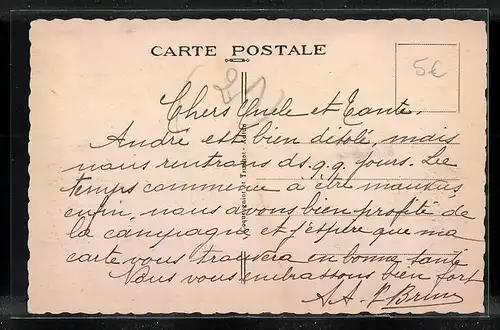 CARTE POSTALE
5€
Chers Oncle et Tante,
André est bien désolé, mais
nous rentrons ds. q.q. jours. Le
temps commence à être mauvais,
enfin, nous avons bien profité de
la campagne et j'espère que ma
carte vous trouvera en bonne santé
Nous vous embrassons bien fort
A.A.